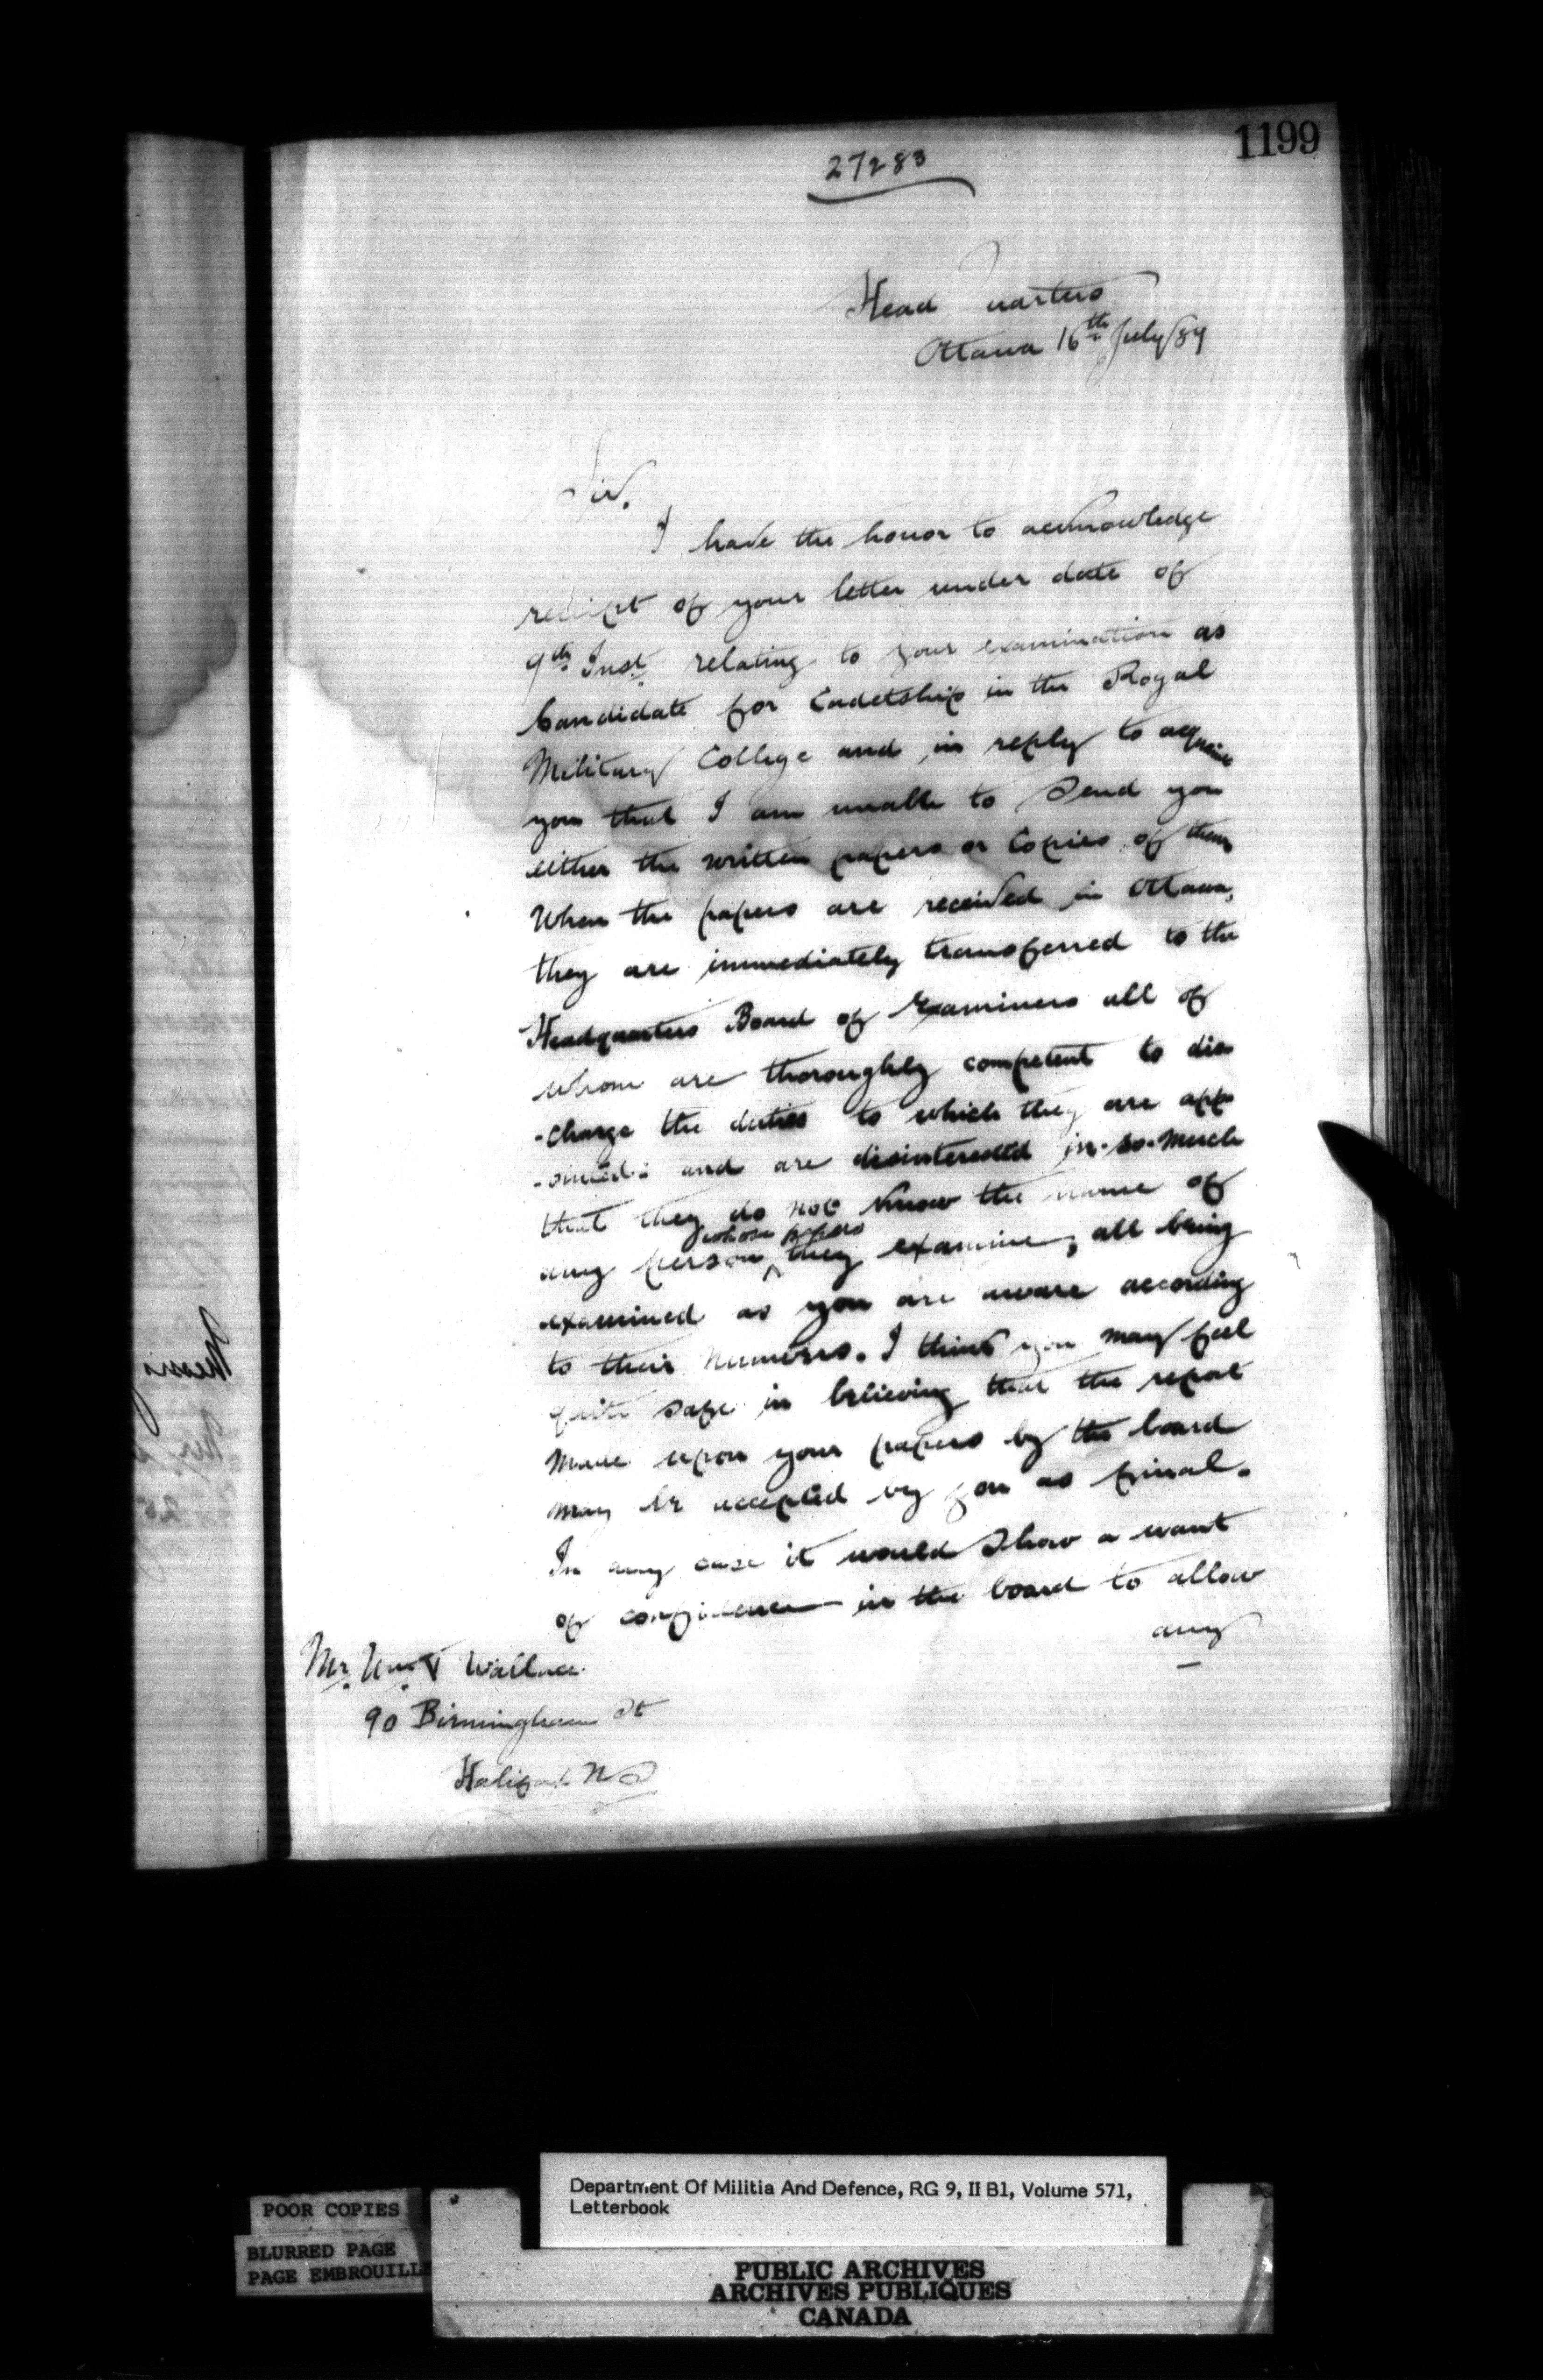 1199
27283
Head Quarters
Ottawa 16th July/89
Sir.
I have the honor to acknowledge
receipt of your letter under date of
9th Inst. relating to your examination as
Candidate for Cadetship in the Royal
Military College and, in reply to acquaint
you that I am unable to Send you
either the written papers or Copies of them
When the papers are received in Ottawa,
they are immediately transferred to the
Headquarters Board of Examiners all of
whom are thoroughly competent to dis
-charge the duties to which they are app
-ointed: and are disinterested in-so-much
that they do not know the name of
whose papers
any person ^ they examine, all being
examined as you are aware according
to their Numbers. I think you may feel
quite safe in believing that the report
made upon your papers by the board
may be accepted by you as final.
In any case it would Show a want
of confidence in the board to allow
any
Mr. Wm. Wallace
90 Birmingham St
Halifax NS
Department Of Militia And Defence, RG 9, II B1, Volume 571,
Letterbook
POOR COPIES
BLURRED PAGE
PAGE EMBROUILLE
PUBLIC ARCHIVES
ARCHIVES PUBLIQUES
CANADA